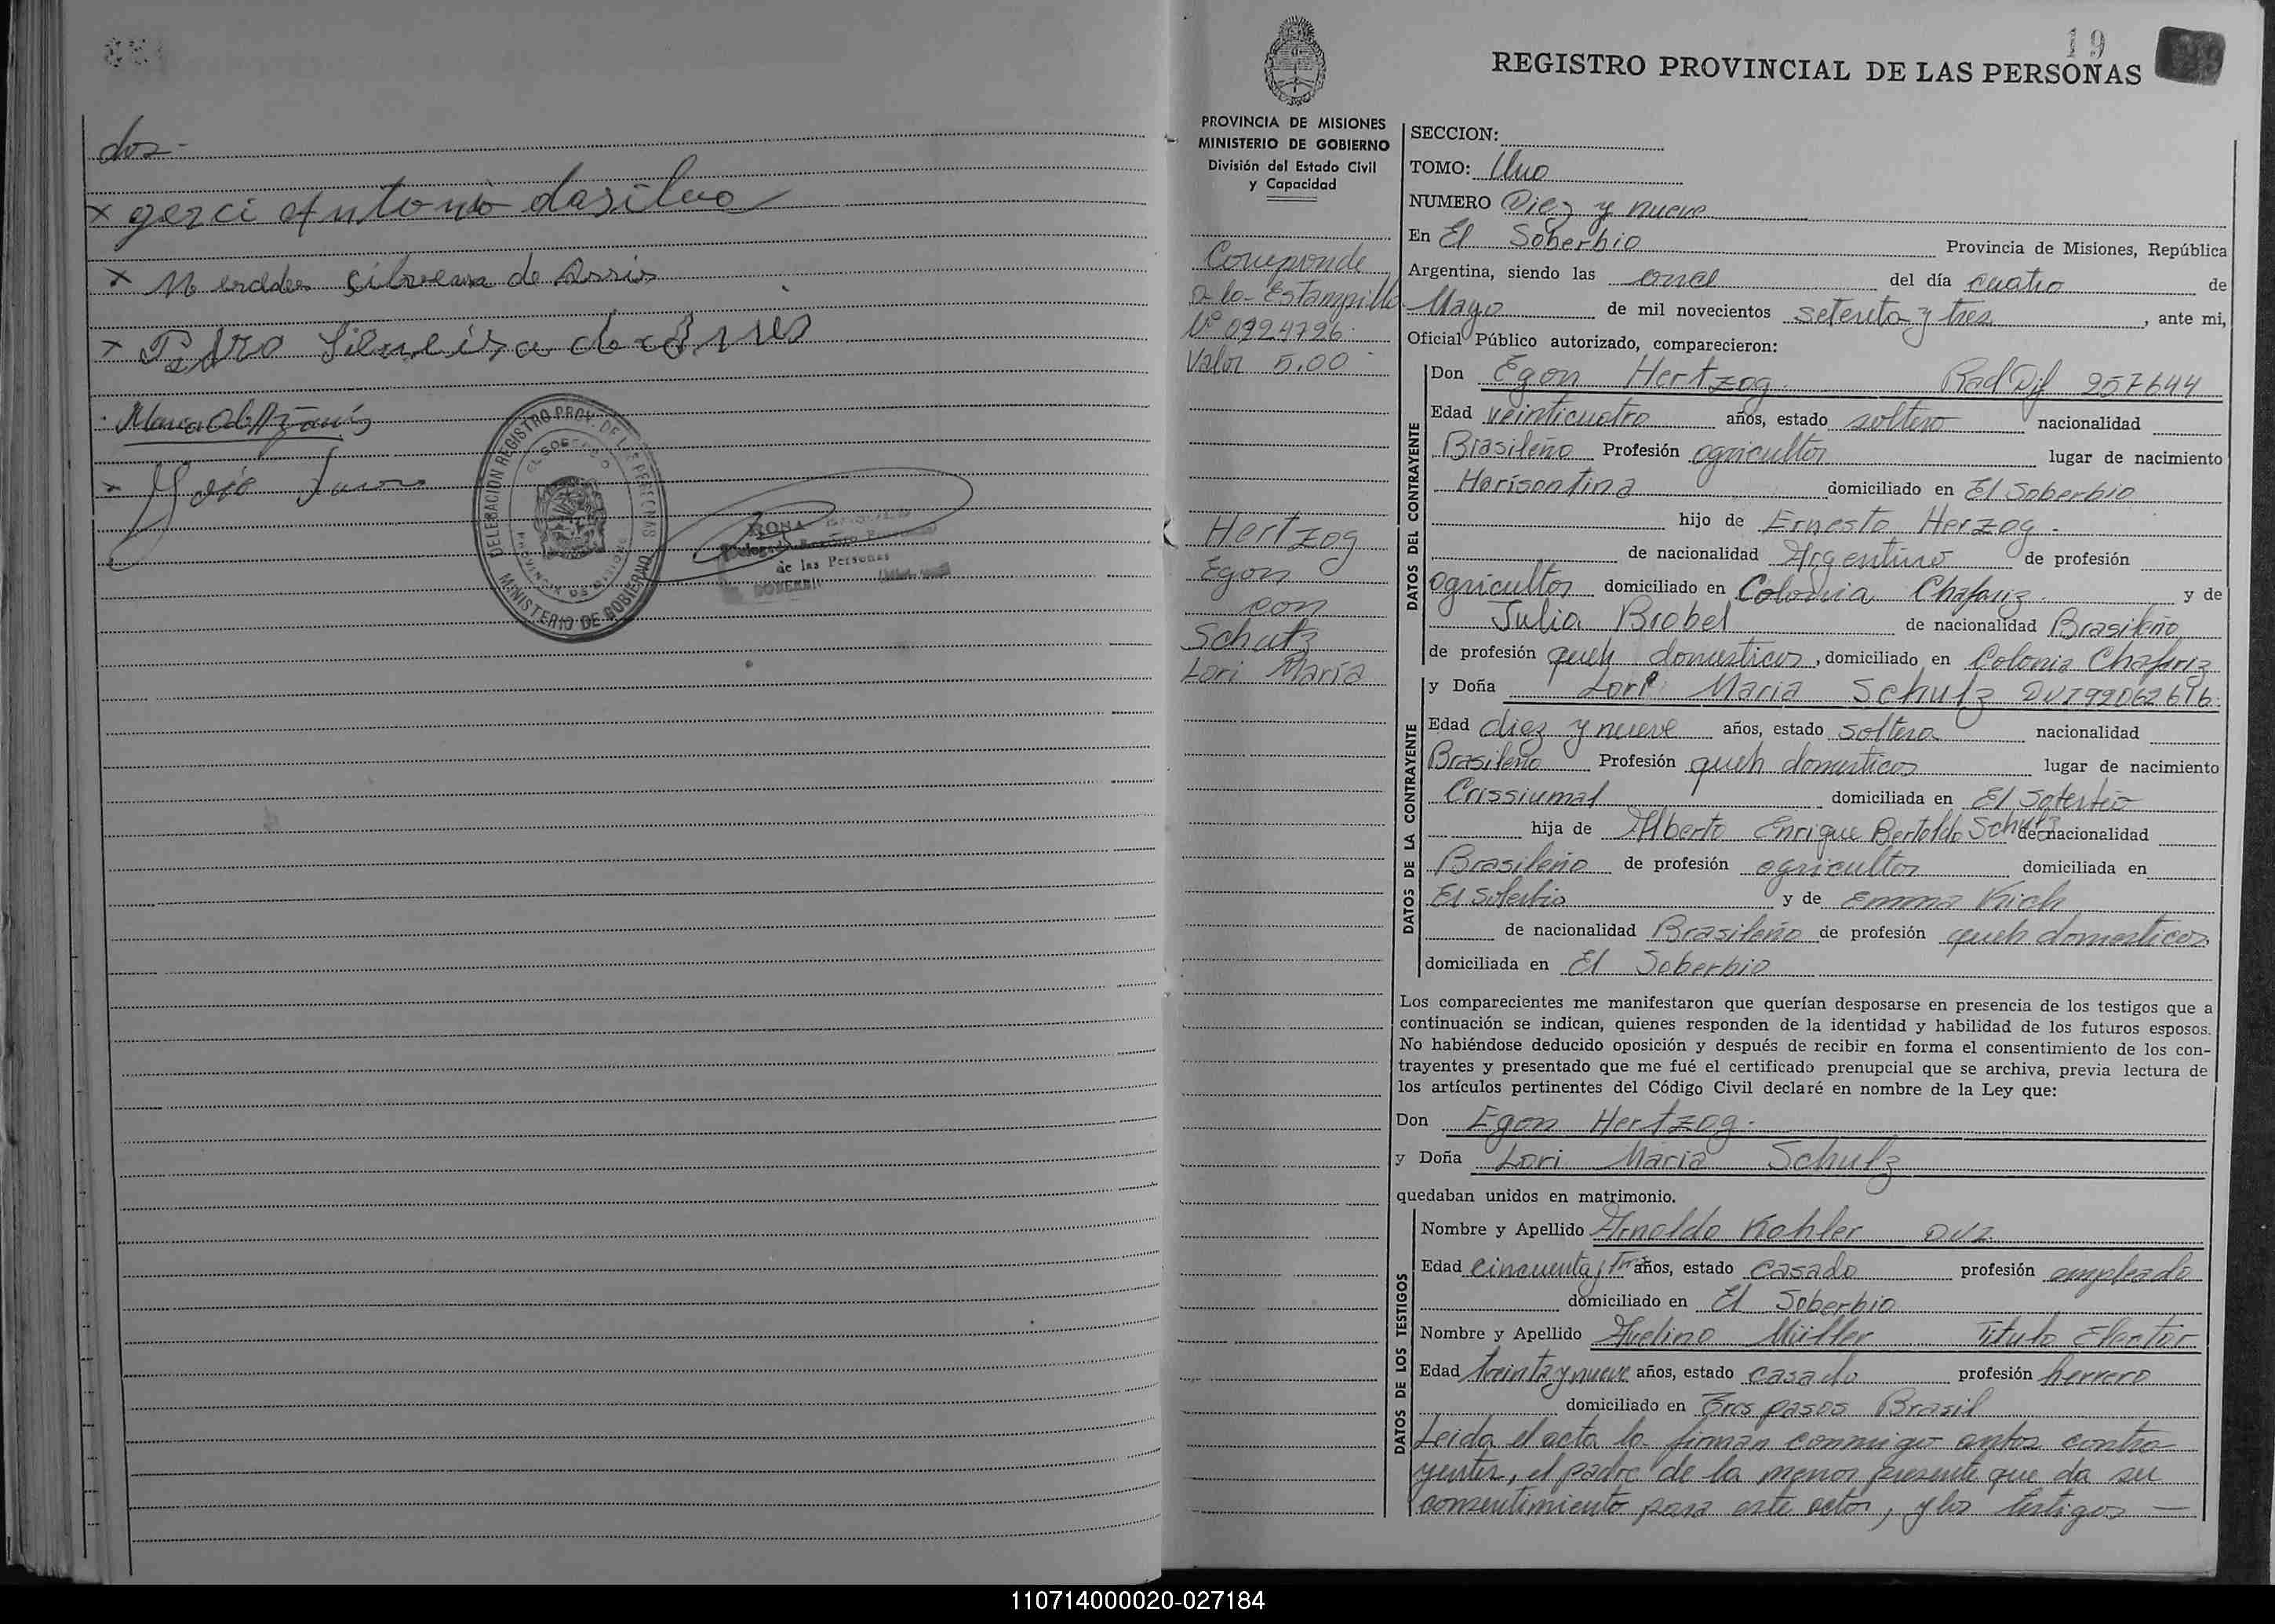 dos-
x gerci Antonio dasilva
x Silveira de Assis
x Pedro Silveira de
x José
DELEGACION REGISTRO PROV. DE LAS PERSONAS
EL SOBERBIO
PROVINCIA DE MISIONES
MINISTERIO DE GOBIERNO
ROSA
de las Personas
19
REGISTRO PROVINCIAL DE LAS PERSONAS
PROVINCIA DE MISIONES
MINISTERIO DE GOBIERNO
División del Estado Civil
y Capacidad
Corresponde
a la Estampilla
Nº 0924796.
Valor 5.00
Hertzog
Egon
con
Schulz
Lori María
SECCION:
TOMO: Uno
NUMERO Diez y nueve
En El Soberbio Provincia de Misiones, República
Argentina, siendo las once del día cuatro de
Mayo de mil novecientos setenta y tres, ante mi,
Oficial Público autorizado, comparecieron:
DATOS DEL CONTRAYENTE
Don Egon Hertzog. Rad Dif 257644
Edad veinticuatro años, estado soltero nacionalidad
Brasileño Profesión agricultor lugar de nacimiento
Horisontina domiciliado en El Soberbio
hijo de Ernesto Herzog.
de nacionalidad Argentino de profesión
agricultor domiciliado en Colonia Chafariz y de
Julia Brobel de nacionalidad Brasileño
de profesión queh domesticos, domiciliado en Colonia Chafariz
DATOS DE LA CONTRAYENTE
y Doña Lori Maria Schulz
Edad diez y nueve años, estado soltera nacionalidad
Brasileño Profesión queh domesticos lugar de nacimiento
Crissiumal domiciliada en El Soberbio
hija de Alberto Enrique Bertoldo Schulz de nacionalidad
Brasileño de profesión agricultor domiciliada en
El Soberbio y de Emma Kich
de nacionalidad Brasileño de profesión queh domesticos
domiciliada en El Soberbio
Los comparecientes me manifestaron que querían desposarse en presencia de los testigos que a
continuación se indican, quienes responden de la identidad y habilidad de los futuros esposos.
No habiéndose deducido oposición y después de recibir en forma el consentimiento de los con-
trayentes y presentado que me fué el certificado prenupcial que se archiva, previa lectura de
los artículos pertinentes del Código Civil declaré en nombre de la Ley que:
Don Egon Hertzog.
y Doña Lori Maria Schulz
quedaban unidos en matrimonio.
DATOS DE LOS TESTIGOS
Nombre y Apellido Arnoldo Kohler
Edad cincuenta años, estado casado profesión empleado
domiciliado en El Soberbio
Nombre y Apellido Avelino Müller Titulo Elector
Edad treinta y nueve años, estado casado profesión herrero
domiciliado en Tres pasos Brasil
Leida el acta la firman conmigo ambos contra
yentes, el padre de la menor presente que da su
consentimiento para este acto, y los testigos —
110714000020-027184